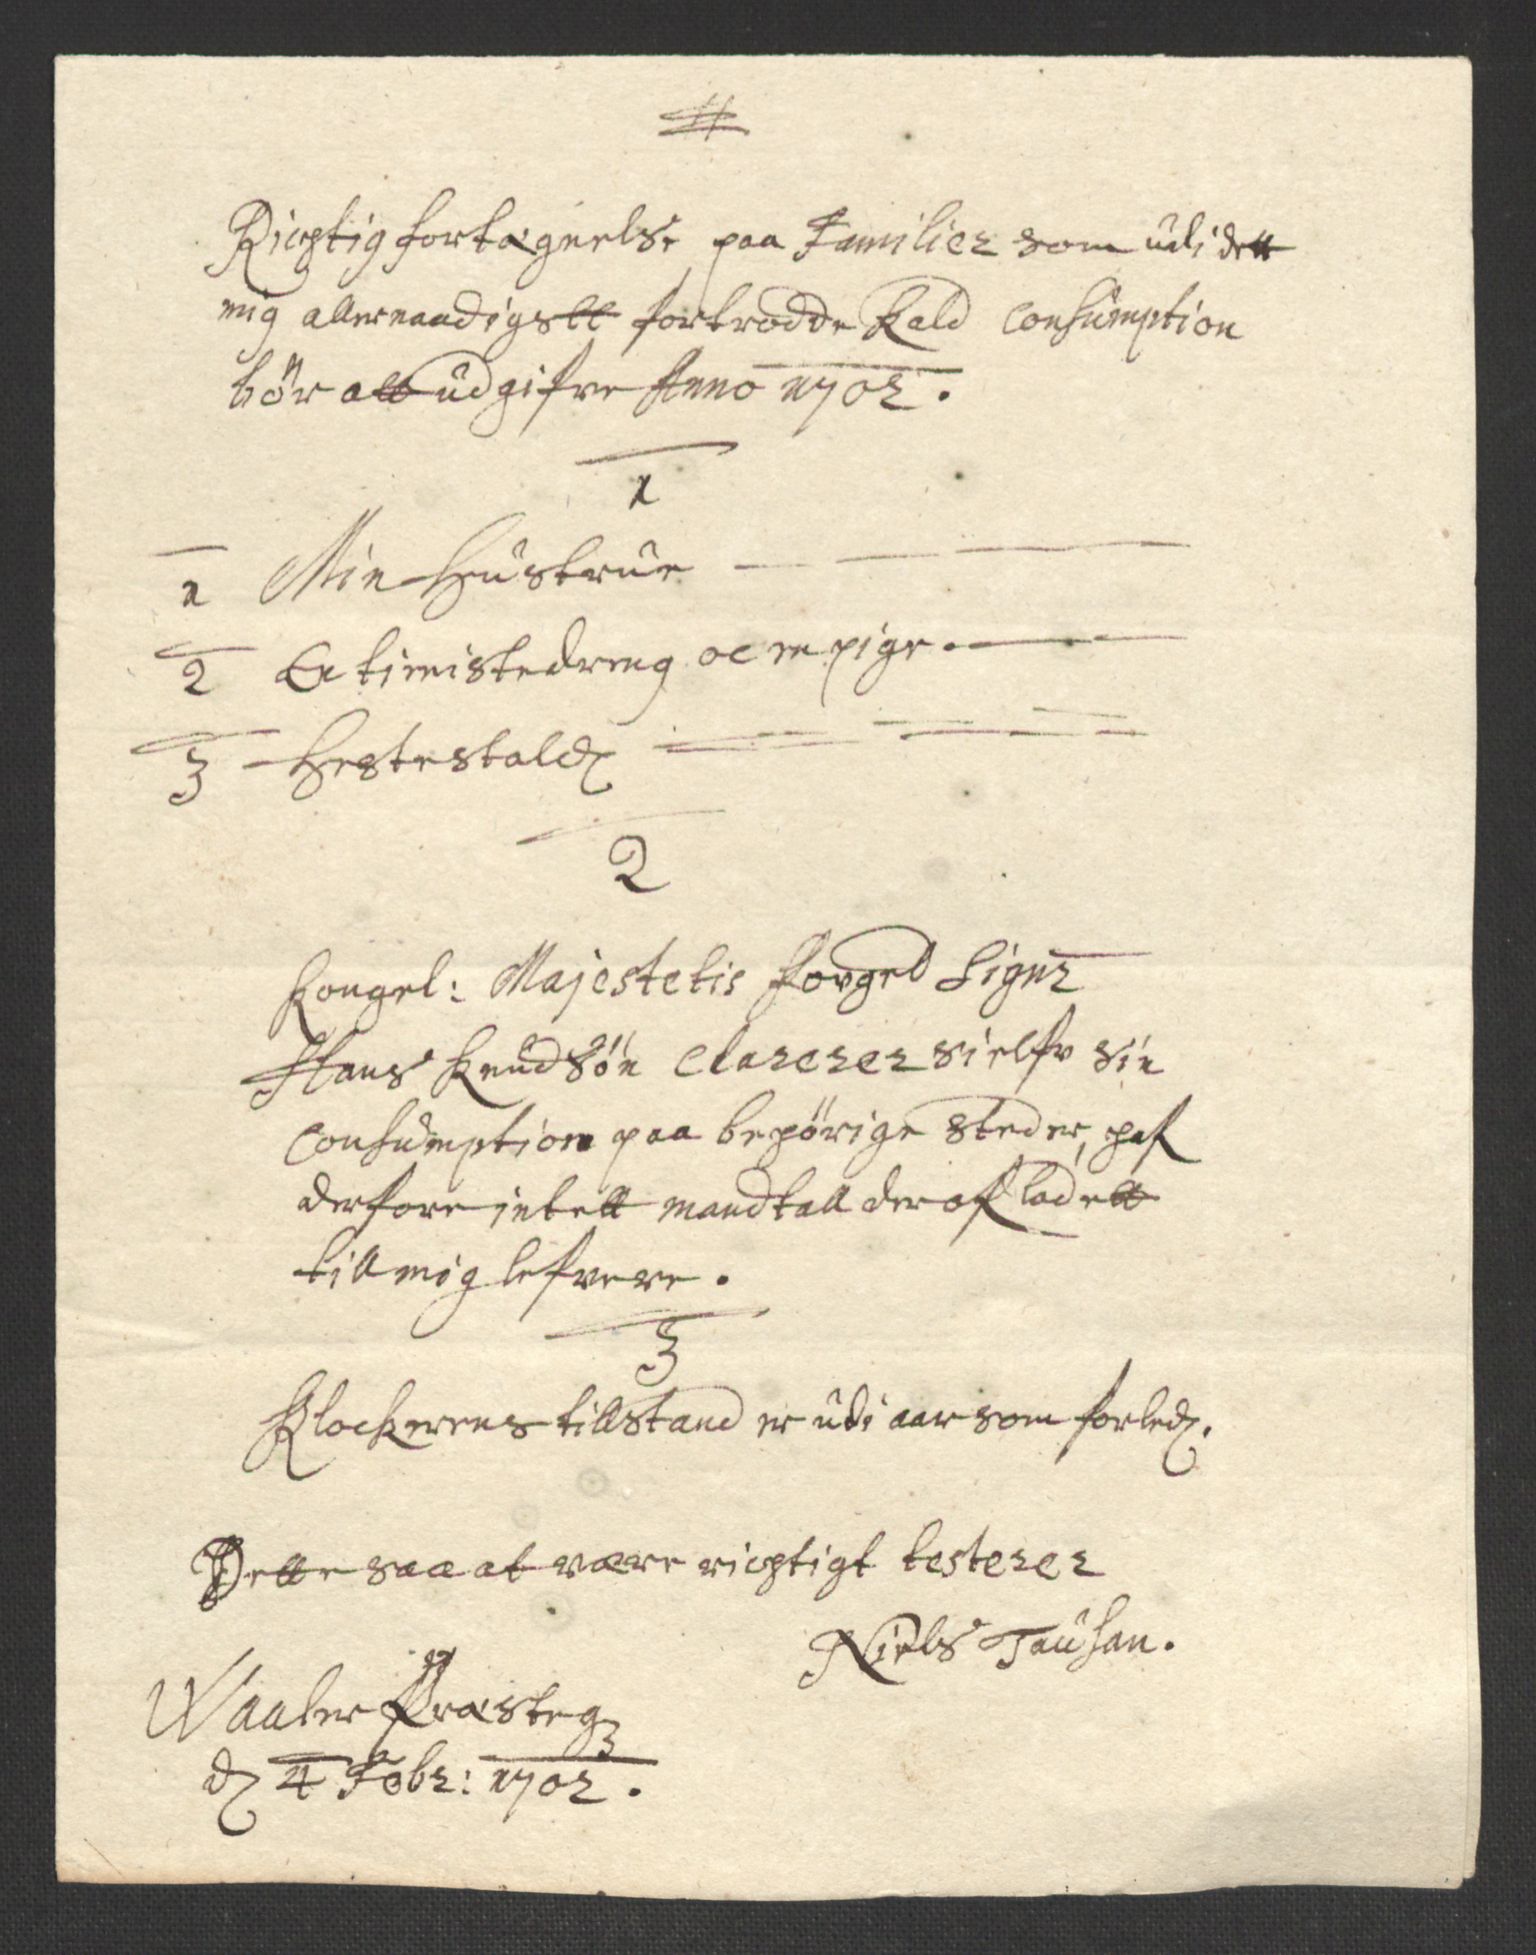 Richtig fortægnelse paa Familier som udi dett
mig allernaadigstt fortrodde Kald Consumption
bör att udgifve Anno 1702.
1
1 Min Hustrue
2 En tienistedreng oc en pige.
3 Hestestald
2
Kongel: Majestetis Fovged Signr
Hans Knudsön Clarerer sielfv sin
Consumption paa behörige steder, haf
derfore intett mandtall der af ladett
till mig lefvere.
3
Klockerens tillstand er udi aar som forled.
Dette saa at være richtigt testerer
Niels Tausan.
Waaler Præsteg
d 4 Febr: 1702.